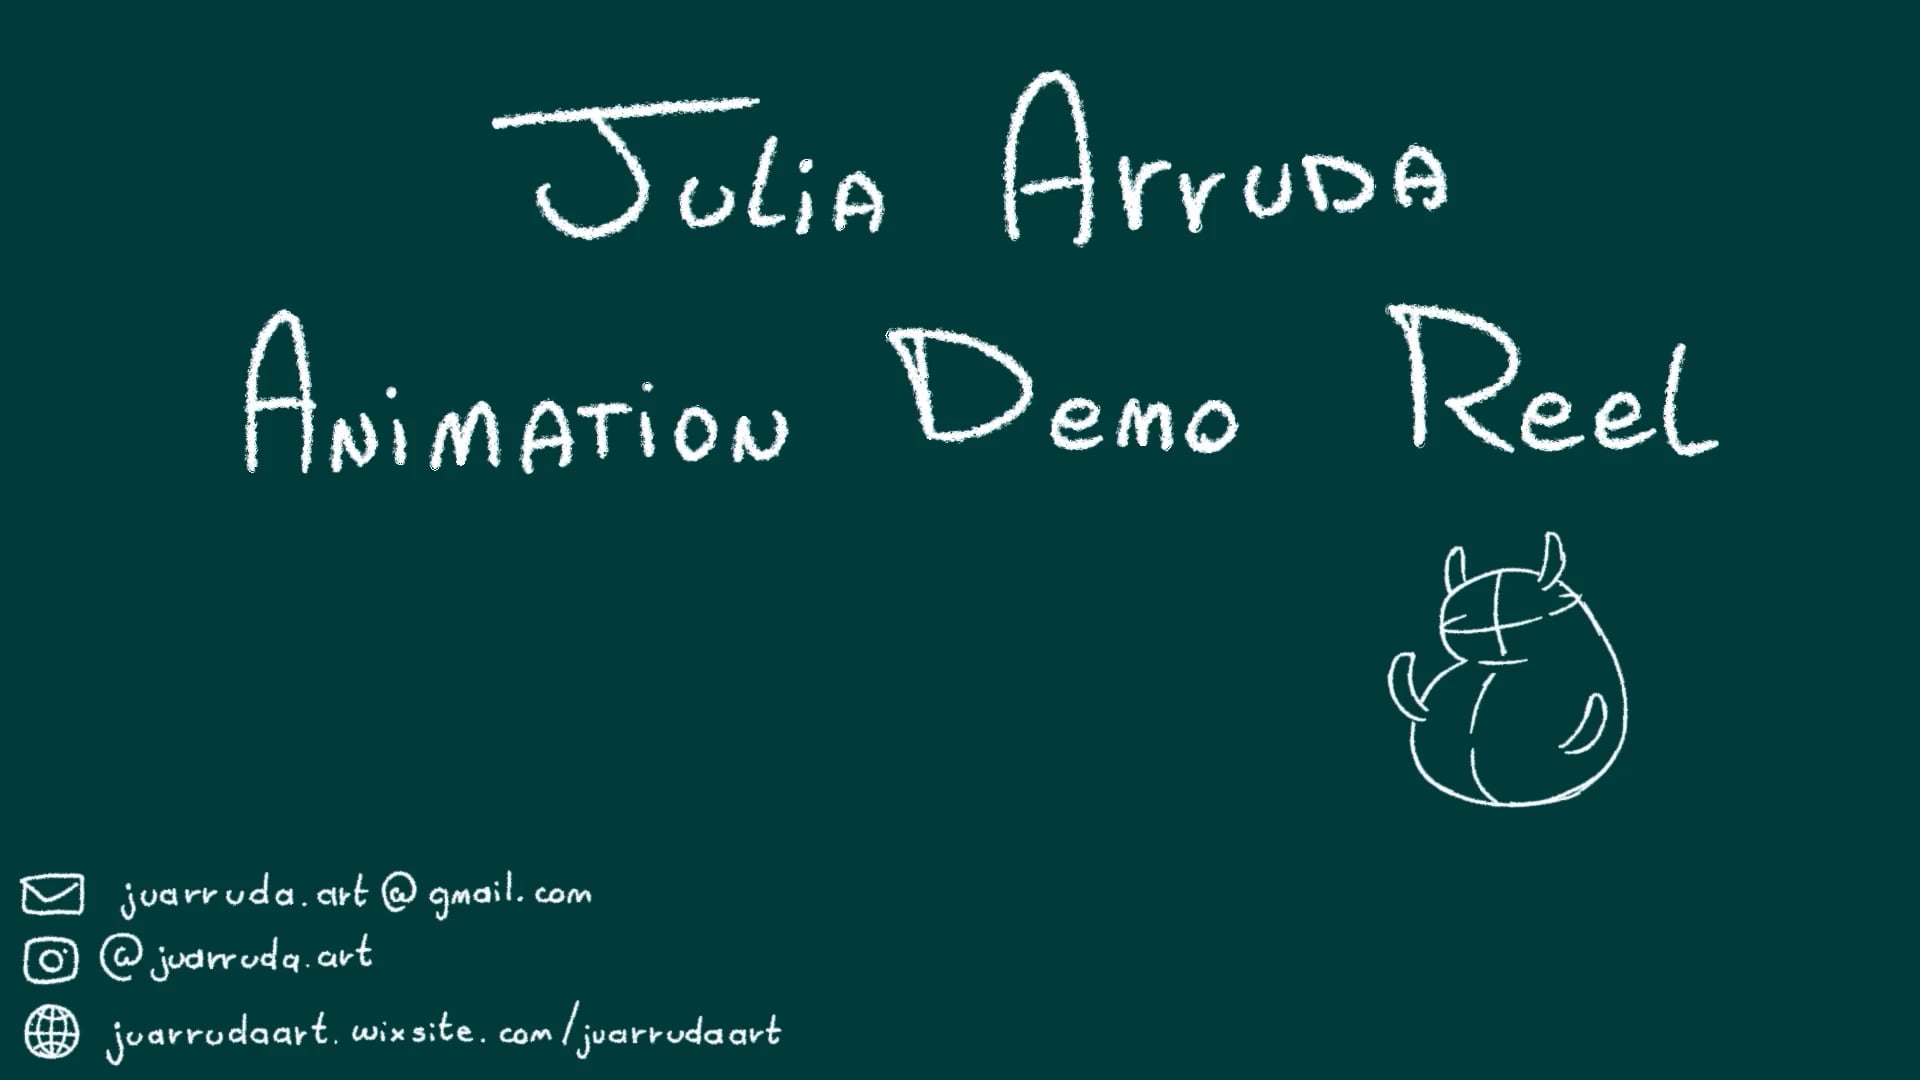 Julia Arruda
Animation Demo Reel
juarruda.art@gmail.com
@juarruda.art
juarrudaart.wixsite.com/juarrudaart